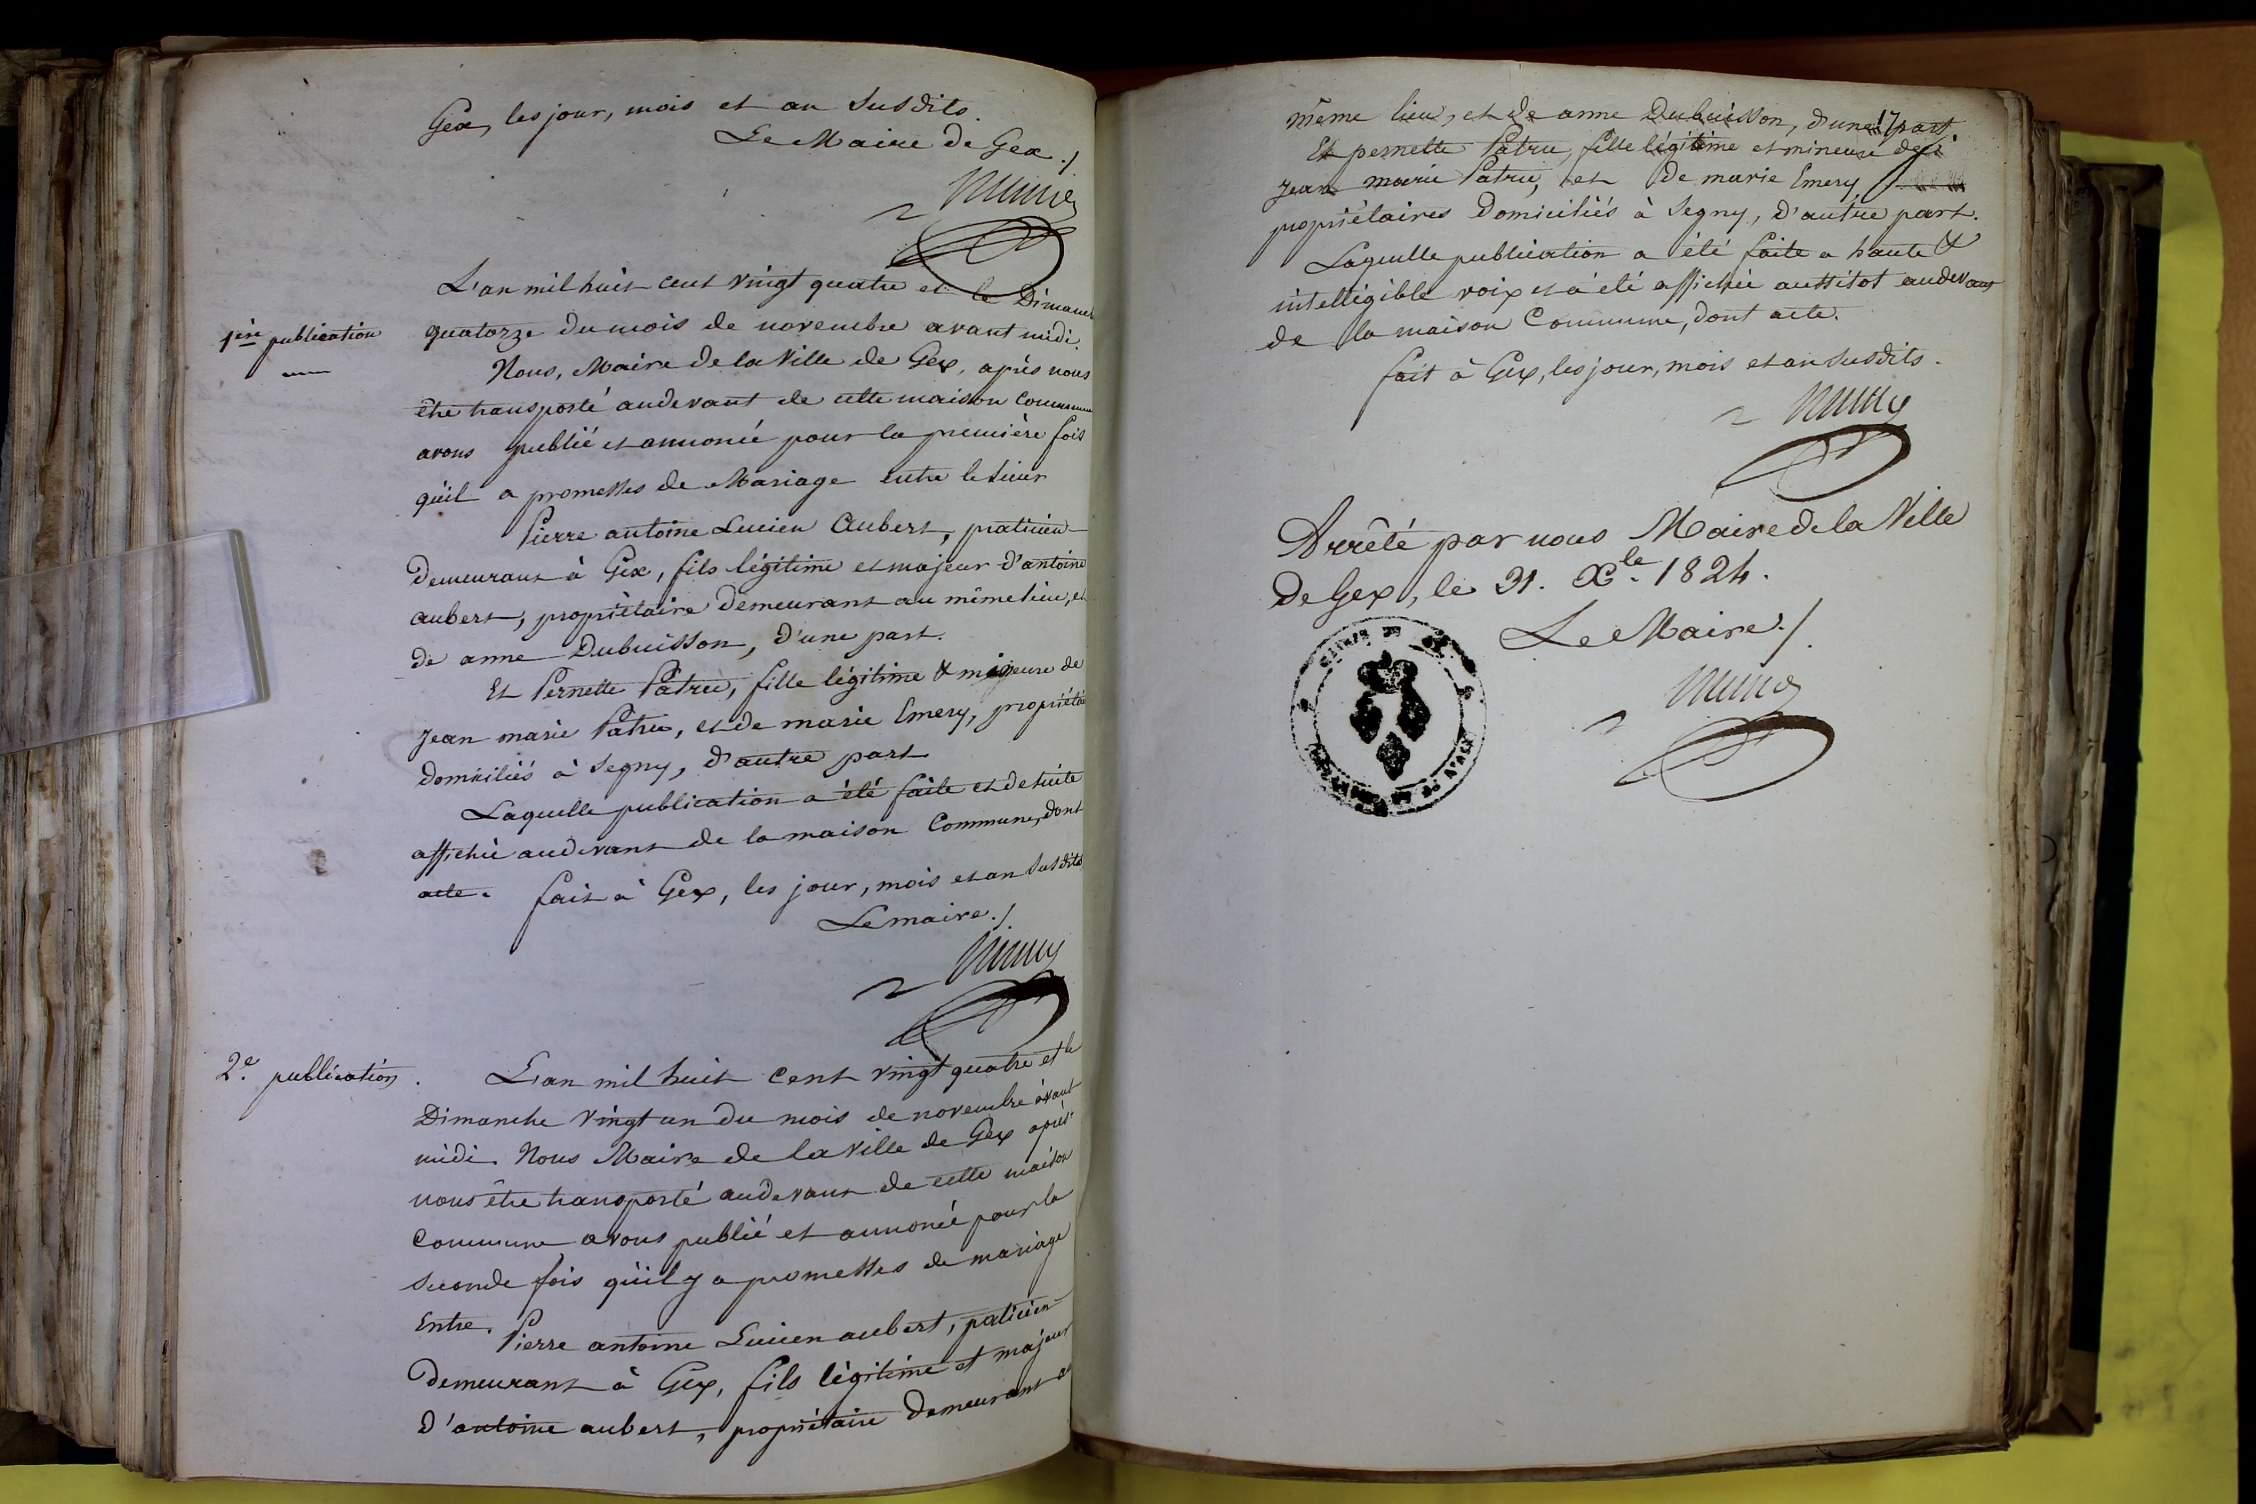 Gex, les jour, mois et an susdits.
Le Maire de Gex ./
L'an mil huit cent vingt quatre et le Dimanche
1ère publication
quatorze du mois de novembre avant midi.
Nous, Maire de la Ville de Gex, après nous
être transporté audevant de cette maison Commune
avons publié et annoncé pour la première fois
qu'il a promesses de Mariage entre le Sieur
Pierre antoine Lucien Aubert, praticien
demeurant à Gex, fils légitime et majeur d'antoine
aubert, propriétaire demeurant au même lieu, et
de anne Dubuisson, d'une part.
Et Pernette Patru, fille légitime & mineure de
Jean marie Patru, et de marie Emery, propriétai
domiciliés à Segny, d'autre part
Laquelle publication a été faite et de suite
affichée audevant de la maison Commune, dont
acte. fait à Gex, les jour, mois et an susdits
Le maire ./
2e. publication.
L'an mil huit cent vingt quatre et le
Dimanche vingt un du mois de novembre avant
midi. Nous Maire de la Ville de Gex après
nous être transporté audevant de cette maison
Commune avons publié et annoncé pour la
seconde fois qu'il y a promesses de mariage
Entre.
Pierre antoine Lucien aubert, paticien
demeurant à Gex, fils légitime et majeur
D'antoine aubert, propriétaire demeurant a
17
même lieu, et de anne Dubuisson, d'une part
Et pernette Patru, fille légitime et mineure de
Jean marie Patru, et de marie Emery,
propriétaires domiciliés à Segny, d'autre part.
Laquelle publication a été faite a haute &
intelligible voix et a été affichée aussitot audevant
de la maison Commune, dont acte.
fait à Gex, les jour, mois et an susdits.
Arrêté par nous Maire de la Ville
de Gex, le 31. Xbre. 1824.
Le Maire ./